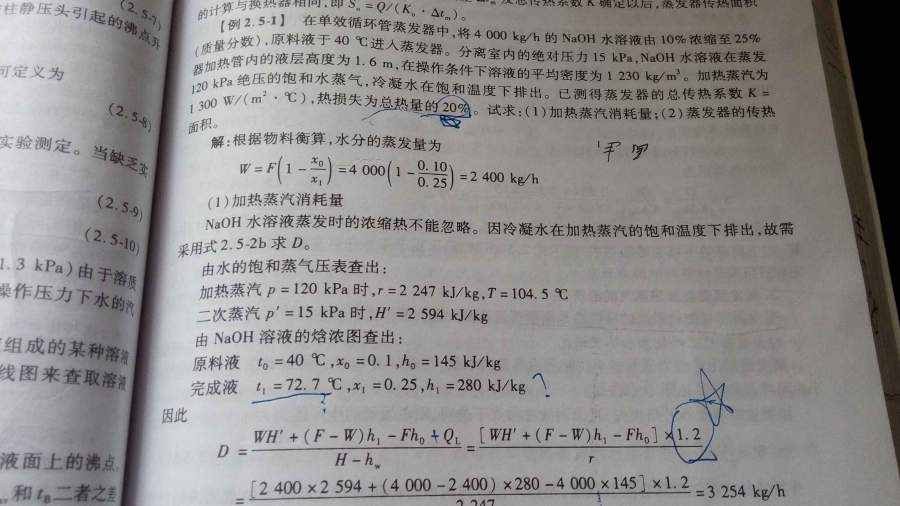 的计算与换热器相同,即 Sₒ=Q/(Kₒ·Δtₘ)。
(2.5-7)
柱静压头引起的沸点升
【例 2.5-1】 在单效循环管蒸发器中,将 4 000 kg/h 的 NaOH 水溶液由 10%浓缩至 25%
(质量分数),原料液于 40 ℃进入蒸发器。分离室内的绝对压力 15 kPa,NaOH 水溶液在蒸发
器加热管内的液层高度为 1.6 m,在操作条件下溶液的平均密度为 1 230 kg/m³。加热蒸汽为
120 kPa 绝压的饱和水蒸气,冷凝水在饱和温度下排出。已测得蒸发器的总传热系数 K=
1 300 W/(m²·℃),热损失为总热量的 20%。试求:(1)加热蒸汽消耗量;(2)蒸发器的传热
面积。
可定义为
(2.5-8)
解:根据物料衡算,水分的蒸发量为
实验测定。当缺乏实
W=F(1-x₀/x₁)=4 000(1-0.10/0.25)=2 400 kg/h
(2.5-9)
(1)加热蒸汽消耗量
NaOH 水溶液蒸发时的浓缩热不能忽略。因冷凝水在加热蒸汽的饱和温度下排出,故需
(2.5-10)
采用式 2.5-2b 求 D。
1.3 kPa)由于溶质
由水的饱和蒸气压表查出:
操作压力下水的汽
加热蒸汽 p=120 kPa 时,r=2 247 kJ/kg,T=104.5 ℃
二次蒸汽 p′=15 kPa 时,H′=2 594 kJ/kg
由 NaOH 溶液的焓浓图查出:
组成的某种溶液
原料液 t₀=40 ℃,x₀=0.1,h₀=145 kJ/kg
线图来查取溶液
完成液 t₁=72.7 ℃,x₁=0.25,h₁=280 kJ/kg ?
因此
D=(WH′+(F-W)h₁-Fh₀+Q_L)/(H-h_w)=([WH′+(F-W)h₁-Fh₀]×1.2)/r
液面上的沸点,
=[2 400×2 594+(4 000-2 400)×280-4 000×145]×1.2/2 247=3 254 kg/h
和 t_B 二者之差